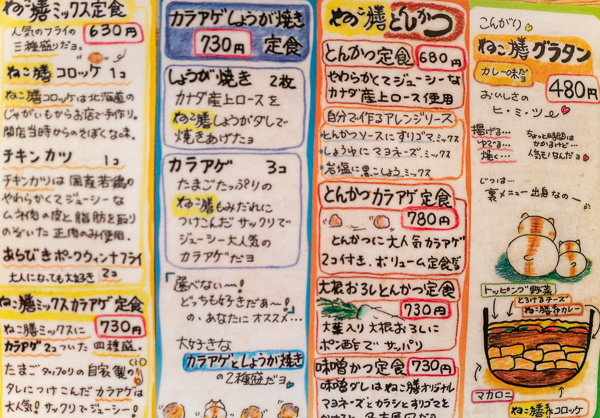 ねこ膳ミックス定食
人気のフライの
三種盛りだョ。
630円
ねこ膳 コロッケ 1コ
ねこ膳コロッケは北海道の
じゃがいもからお店で手作り。
開店当時からのそぼくな味。
チキンカツ 1コ
チキンカツは国産若鶏の
やわらかくてジューシーな
ムネ肉の皮と脂肪を取り
のぞいた正肉のみ使用.
あらびきポークウィンナフライ
大人になっても大好き 2コ
ねこ膳ミックスカラアゲ定食
ねこ膳ミックスに
730円
カラアゲ2コついた四種盛.
たまごタップリの自家製の
タレにつけこんだカラアゲは
大人気!サックリでジューシー!
カラアゲしょうが焼き
730円
定食
しょうが焼き 2枚
カナダ産上ロースを
ねこ膳しょうがダレで
焼きあげたョ
カラアゲ 3コ
たまごたっぷりの
ねこ膳もみだれに
つけこんだ サックリで
ジューシー大人気の
カラアゲだョ
「選べない〜!
どっちも好きだあ〜!
の、あなたにオススメ…
大好きな
カラアゲとしょうが焼き
の2種盛だョ
ねこ膳とんかつ
とんかつ定食 680円
やわらかくてジューシーな
カナダ産上ロース使用
自分で作るアレンジソース
とんかつソースにすりゴマ.ミックス
しょうゆにマヨネーズ.ミックス
岩塩に黒こしょう.ミックス
とんかつカラアゲ定食
780円
とんかつに大人気カラアゲ
2コ付き.ボリューム定食だョ
大根おろしとんかつ定食
730円
大葉入り大根おろしに
ポン酢でサッパリ
味噌かつ定食 730円
味噌ダレはねこ膳オリジナル
マヨネーズとカラシとすりゴマと
こんがり
ねこ膳グラタン
カレー味だョ
480円
おいしさの
ヒ・ミ・ツ
揚げる…
ゆでる…
焼く…
ちょっと時間は
かかるけど…
人気モノなんだョ
じつは…
裏メニュー出身なの〜
トッピング野菜
とろけるチーズ
ねこ膳カレー
マカロニ
ねこ膳コロッケ